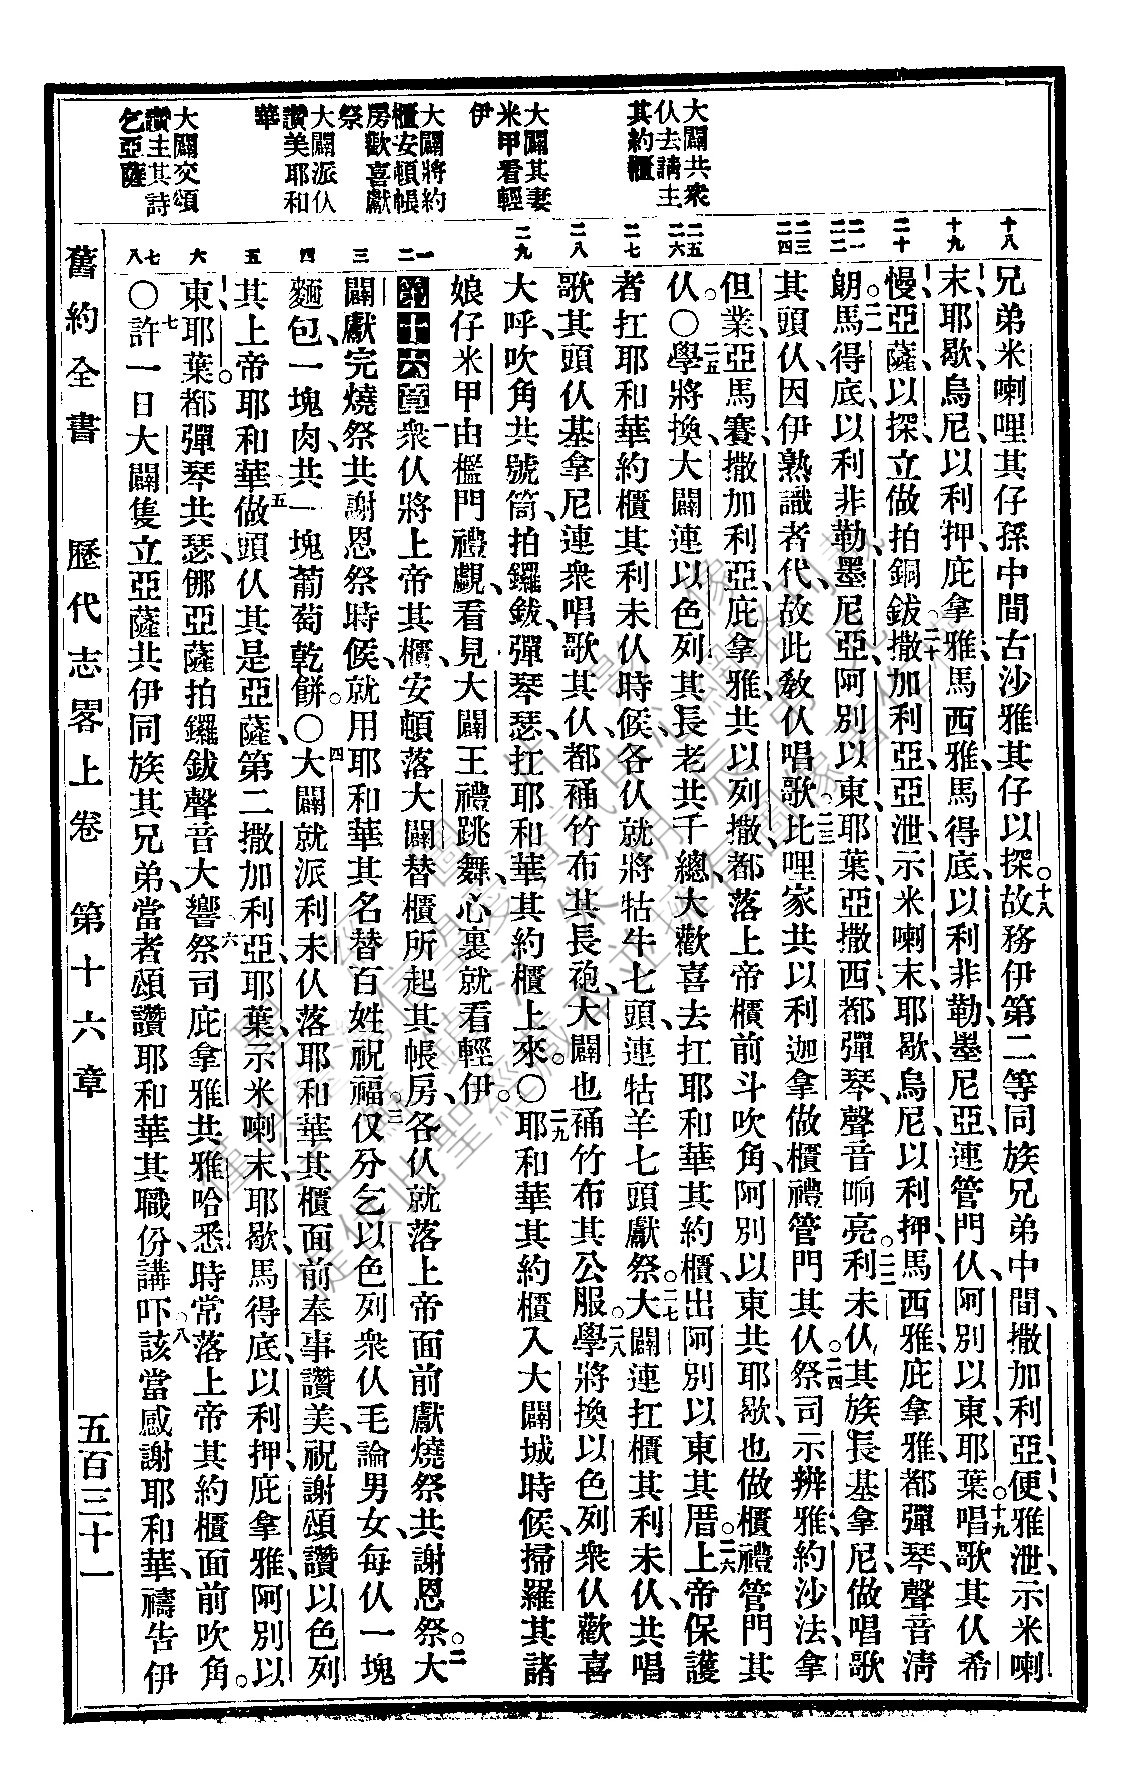 大闢共衆
仫去請主
其約櫃
大闢其妻
米甲看輕
伊
大闢將約
櫃安頓帳
房歡喜獻
祭
大闢派仫
讚美耶和
華
大闢交頌
讚主其詩
乞亞薩
十八
十九
二十
二一
二二
二三
二四
二五
二六
二七
二八
二九
一
二
三
四
五
六
七
八
兄弟米喇哩其仔孫中間古沙雅其仔以探。十八故務伊第二等同族兄弟中間、撒加利亞、便、雅泄、示米喇
末、耶歇、烏尼、以利押、庇拿雅、馬西雅、馬得底、以利非勒、墨尼亞、連管門仫、阿別以東、耶葉。十九唱歌其仫希
慢、亞薩、以探、立做拍銅鈸。二十撒加利亞、亞泄、示米喇末、耶歇、烏尼、以利押、馬西雅、庇拿雅、都彈琴、聲音淸
朗。二一馬得底、以利非勒、墨尼亞、阿別以東、耶葉、亞撒西、都彈琴、聲音响亮。二二利未仫其族長基拿尼做唱歌
其頭仫、因伊熟識者代、故此敎仫唱歌。二三比哩家共以利迦拿、做櫃禮管門其仫。二四祭司示辨雅、約沙法、拿
但業、亞馬賽、撒加利亞、庇拿雅、共以列撒、都落上帝櫃前斗吹角、阿別以東共耶歇、也做櫃禮管門其
仫。〇二五學將換、大闢連以色列其長老、共千總、大歡喜去扛耶和華其約櫃、出阿別以東其厝。二六上帝保護
者扛耶和華約櫃其利未仫時候、各仫就將牯牛七頭、連牯羊七頭獻祭。二七大闢連扛櫃其利未仫、共唱
歌其頭仫基拿尼、連衆唱歌其仫、都䘼竹布其長袍、大闢也䘼竹布其公服。二八學將換以色列衆仫歡喜
大呼、吹角共號筒、拍鑼鈸、彈琴瑟、扛耶和華其約櫃上來。〇二九耶和華其約櫃入大闢城時候、掃羅其諸
娘仔米甲、由檻門禮覷、看見大闢王禮跳舞、心裏就看輕伊。
第十六章一衆仫將上帝其櫃、安頓落大闢替櫃所起其帳房、各仫就落上帝面前獻燒祭、共謝恩祭。二大
闢獻完燒祭共謝恩祭時候、就用耶和華其名替百姓祝福。三仅分乞以色列衆仫、毛論男女、每仫一塊
麵包、一塊肉、共一塊葡萄乾餅。〇四大闢就派利未仫落耶和華其櫃面前奉事、讚美、祝謝、頌讚以色列
其上帝耶和華。五做頭仫其是亞薩、第二撒加利亞、耶葉、示米喇末、耶歇、馬得底、以利押、庇拿雅、阿別以
東、耶葉、都彈琴共瑟、䢵亞薩拍鑼鈸、聲音大響。六祭司庇拿雅共雅哈悉、時常落上帝其約櫃面前吹角。
〇七許一日大闢隻立亞薩共伊同族其兄弟、當者頌讚耶和華其職份、講吓。八該當感謝耶和華、禱告伊
舊約全書　歷代志畧上卷　第十六章　五百三十一